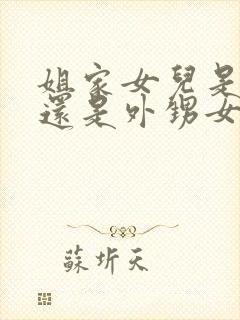 姐家女兒是
還是外甥女
蘇圻天